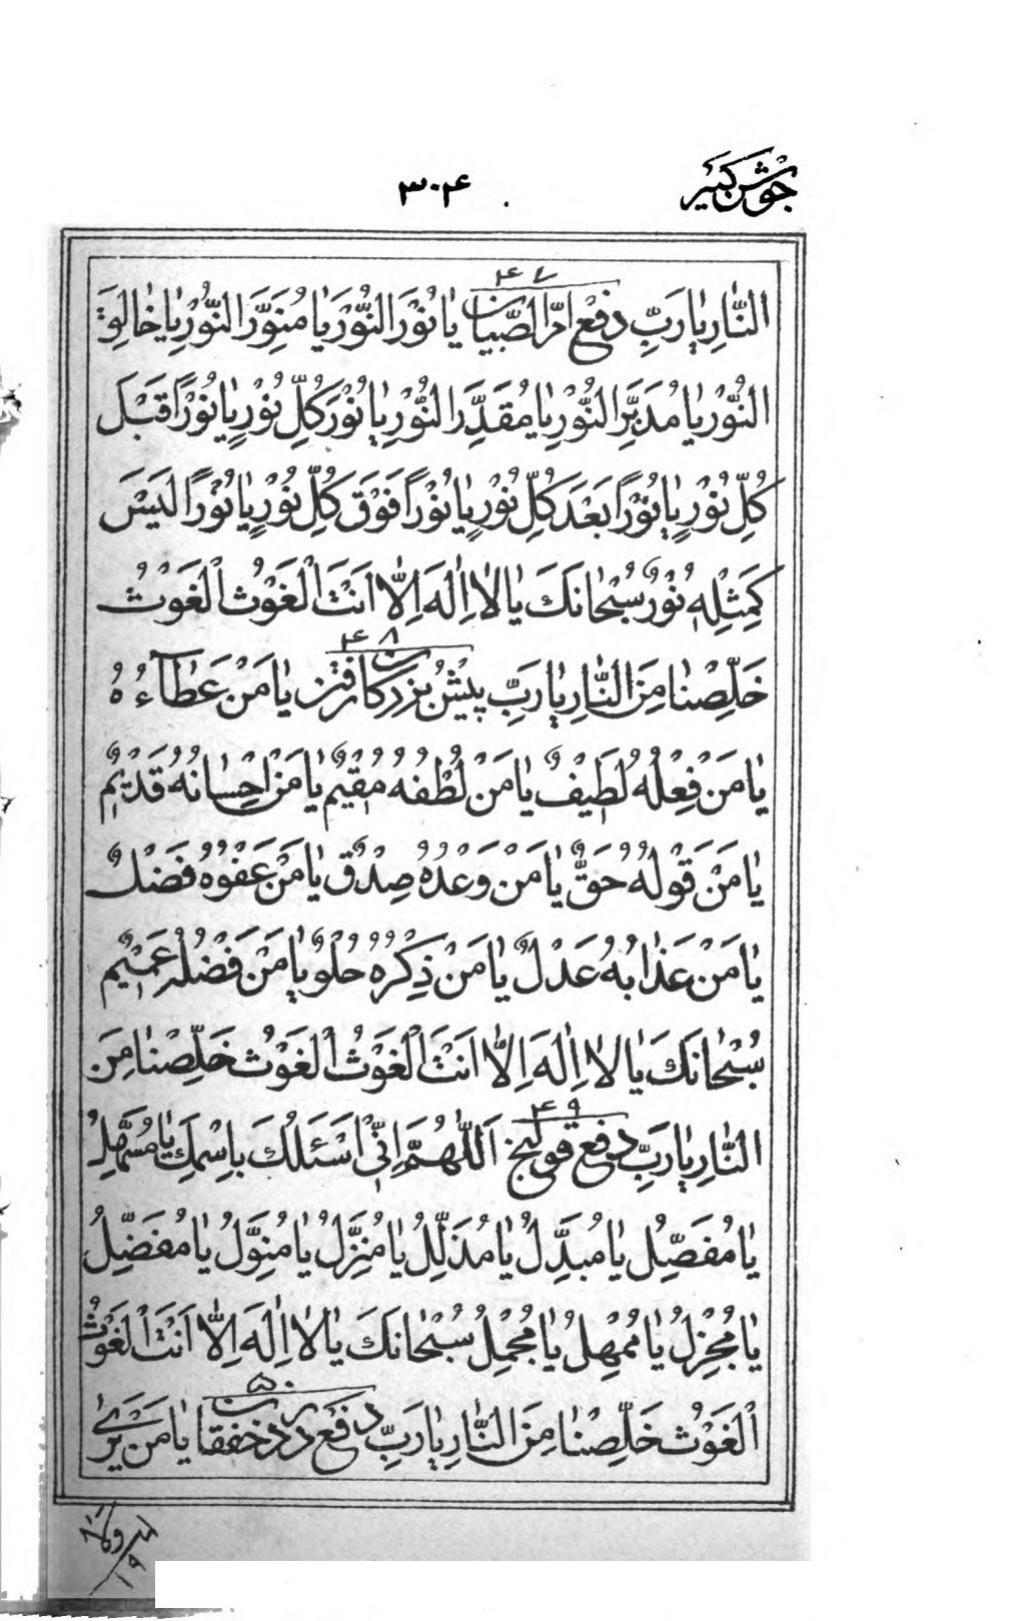 جوشن کبیر
۳۰۴
۴۷
النَّارِ يَا رَبِّ دفع امّ الصّبیان يَا نُورَ النُّورِ يَا مُنَوِّرَ النُّورِ يَا خَالِقَ
النُّورِ يَا مُدَبِّرَ النُّورِ يَا مُقَدِّرَ النُّورِ يَا نُورَ كُلِّ نُورٍ يَا نُورًا قَبْلَ
كُلِّ نُورٍ يَا نُورًا بَعْدَ كُلِّ نُورٍ يَا نُورًا فَوْقَ كُلِّ نُورٍ يَا نُورًا لَيْسَ
كَمِثْلِهِ نُورٌ سُبْحَانَكَ يَا لَا اِلٰهَ اِلَّا اَنْتَ الْغَوْثُ الْغَوْثُ
۴۸
خَلِّصْنَا مِنَ النَّارِ يَا رَبِّ پیش بزرگان رفتن يَا مَنْ عَطَاءُهُ
يَا مَنْ فِعْلُهُ لَطِيفٌ يَا مَنْ لُطْفُهُ مُقِيمٌ يَا مَنْ اِحْسَانُهُ قَدِيمٌ
يَا مَنْ قَوْلُهُ حَقٌّ يَا مَنْ وَعْدُهُ صِدْقٌ يَا مَنْ عَفْوُهُ فَضْلٌ
يَا مَنْ عَذَابُهُ عَدْلٌ يَا مَنْ ذِكْرُهُ حُلْوٌ يَا مَنْ فَضْلُهُ عَمِيمٌ
سُبْحَانَكَ يَا لَا اِلٰهَ اِلَّا اَنْتَ الْغَوْثُ الْغَوْثُ خَلِّصْنَا مِنَ
۴۹
النَّارِ يَا رَبِّ دفع قولنج اَللّٰهُمَّ اِنِّي اَسْئَلُكَ بِاسْمِكَ يَا مُسَهِّلُ
يَا مُفَصِّلُ يَا مُبَدِّلُ يَا مُذَلِّلُ يَا مُنَزِّلُ يَا مُنَوِّلُ يَا مُفَضِّلُ
يَا مُجْزِلُ يَا مُمْهِلُ يَا مُجْمِلُ سُبْحَانَكَ يَا لَا اِلٰهَ اِلَّا اَنْتَ الْغَوْثُ
۵۰
الْغَوْثُ خَلِّصْنَا مِنَ النَّارِ يَا رَبِّ دفع درد خفقان يَا مَنْ يَرٰى